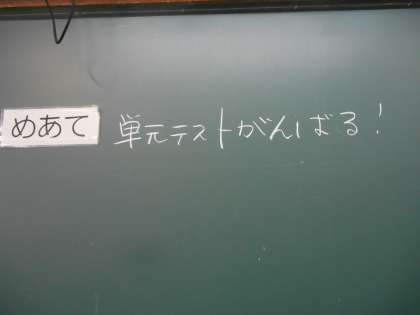 めあて 単元テストがんばる!